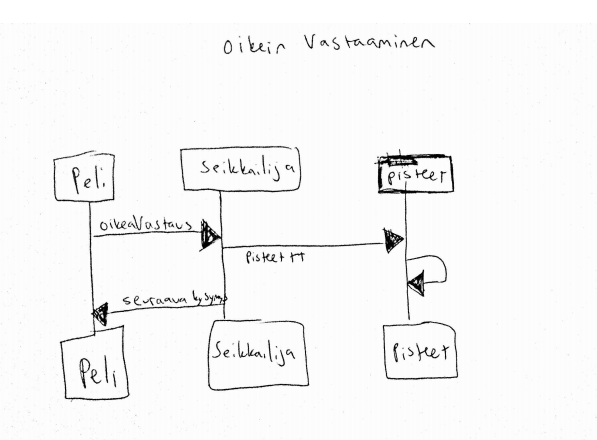 Oikein Vastaaminen
Peli
Seikkailija
pisteet
oikeaVastaus
Pisteet ++
seuraava kysymys
Peli
Seikkailija
Pisteet